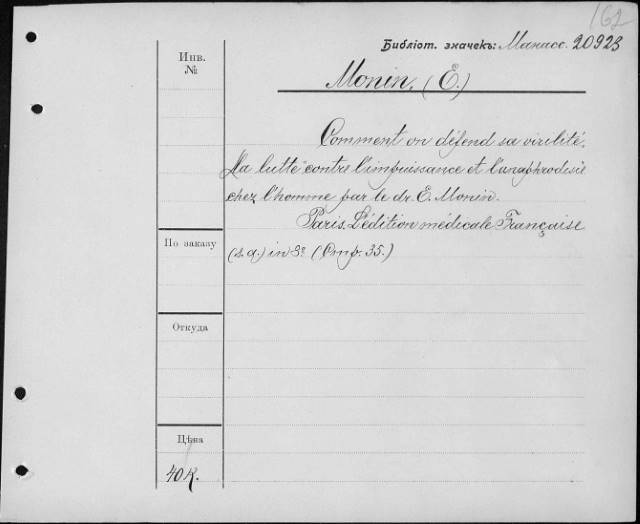 162
Библіот. значекъ: Манасс. 20923
Инв.
№
Monin. (E.)
Comment on défend sa virilité.
La lutte contre l'impuissance et l'anaphrodisie
chez l'homme par le dr. E. Monin.
Paris. L'édition médicale Française
(s. a.) in 8º (Стр. 35.)
По заказу
Откуда
Цѣна
40 к.